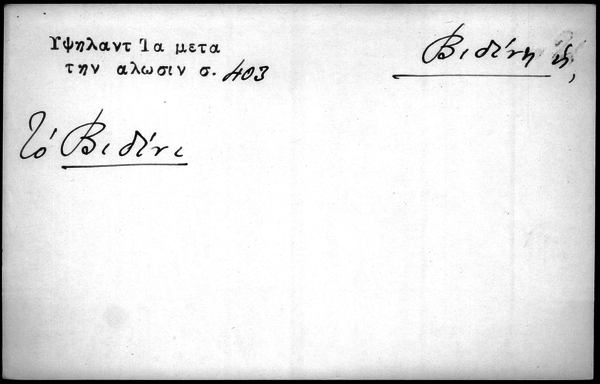 Υψηλαντ Ία μετα
την αλωσιν σ. 403
Βιδίνη ἡ,
τό Βιδίνι